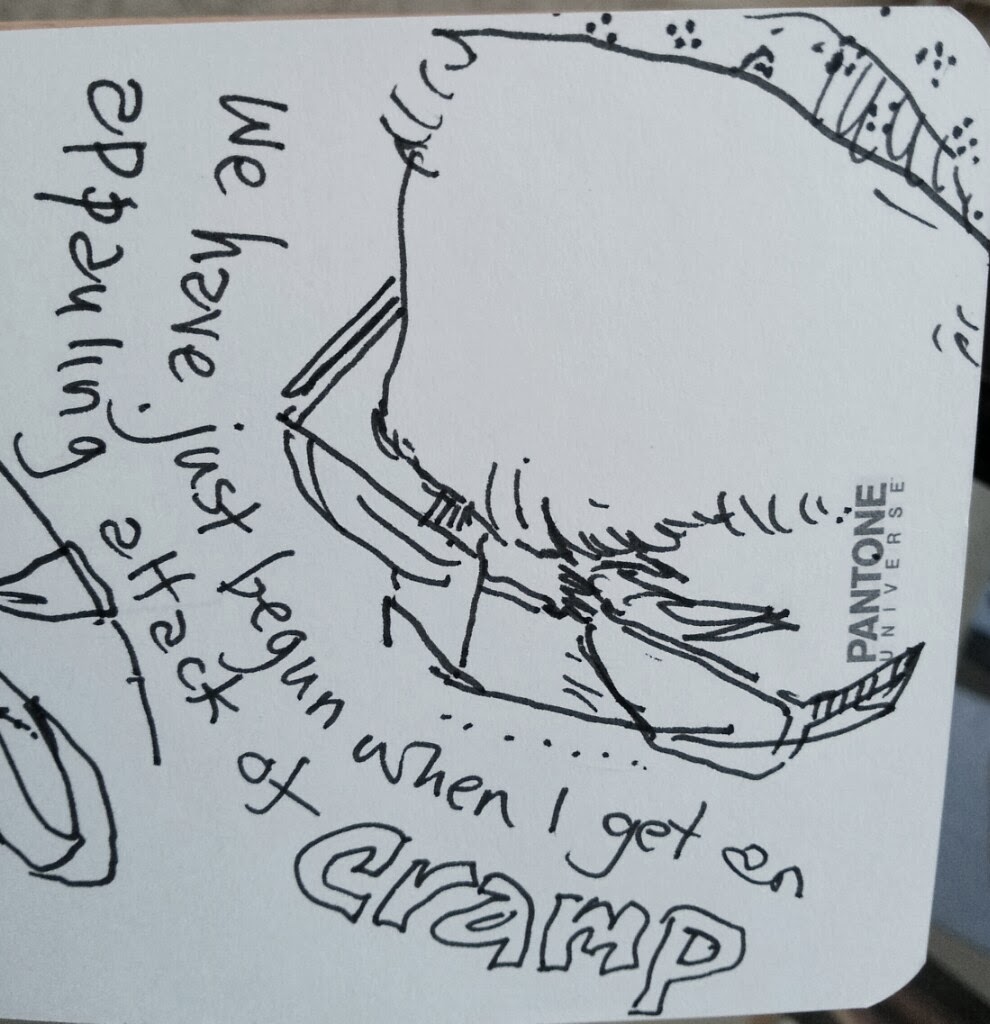 We have just begun when I get an
appauling attack of
cramp
PANTONE
UNIVERSE